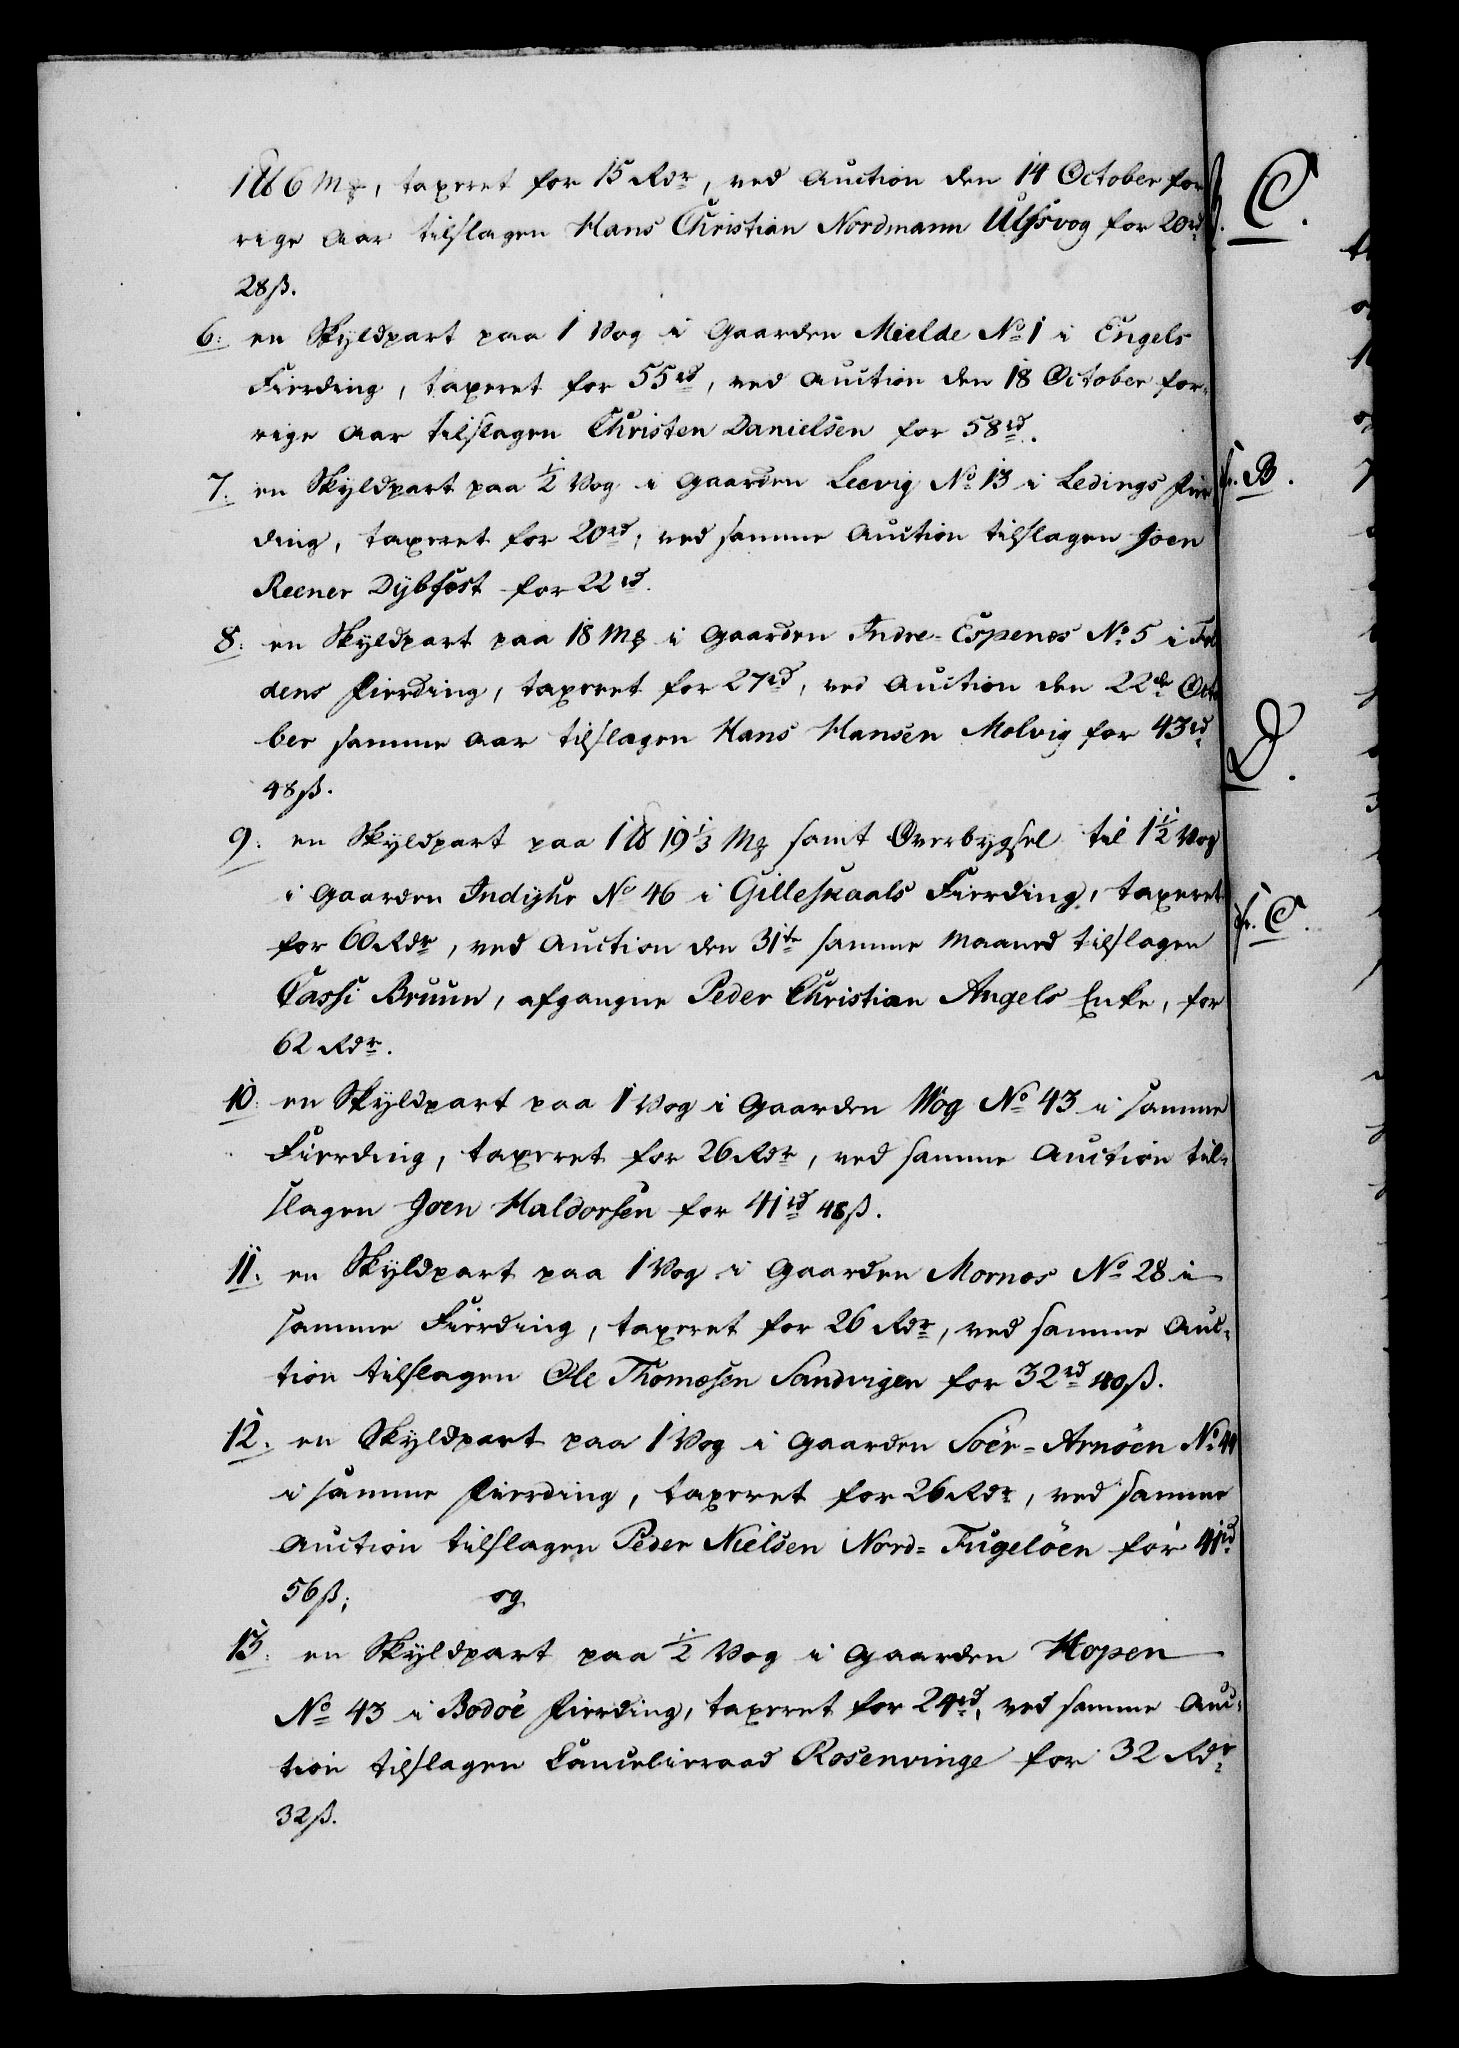 1 ℔ 6 Mrk, taxeret for 15 Rdr, ved Auction den 14 October for
rige Aar tilslagen Hans Christian Nordmann Ulfsvog for 20rd
28ß.
6. en Skyldpart paa 1 Vog i Gaarden Mielde No 1 i Engels
Fierding, taxeret for 55rd, ved Auction den 18 October for-
rige Aar tilslagen Christen Danielsen for 58rd.
7. en Skyldpart paa ½ Vog i Gaarden Leevig No 13 i Ledings Fier
ding, taxeret for 20rd, ved samme Auction tilslagen Joen
Reener Dybfest for 22rd.
8. en Skyldpart paa 18 Mrk i Gaarden Indre-Espenæs No 5 i
dens Fierding, taxeret for 27rd, ved Auction den 22de Octo
ber samme Aar tilslagen Hans Hansen Molvig for 43rd
48ß.
9. en Skyldpart paa 1 ℔ 19⅓ Mrk samt Overbygsel til 1½ Vog
i Gaarden Indyhr No 46 i Gilleskaals Fierding, taxeret
for 60 Rdr, ved Auction den 31te samme Maaned tilslagen
Cassi Bruun, afgangne Peder Christian Angels Enke, for
62 Rdr.
10. en Skyldpart paa 1 Vog i Gaarden Wog No 43 i samme
Fierding, taxeret for 26 Rdr, ved samme Auction til-
slagen Joen Haldorsen for 41rd 48ß.
11. en Skyldpart paa 1 Vog i Gaarden Mornes No 28 i
samme Fierding, taxeret for 26 Rdr, ved samme Auc-
tion tilslagen Ole Thomæsen Sandvigen for 32rd 40ß.
12. en Skyldpart paa 1 Vog i Gaarden Soër-Arnöen No 44
i samme Fierding, taxeret for 26 Rdr, ved samme
Auction tilslagen Peder Nielsen Nord-Fugelöen for 41rd
56ß; og
13. en Skyldpart paa ½ Vog i Gaarden Hopen
No 43 i Bodöe Fierding, taxeret for 24rd, ved samme Auc-
tion tilslagen Cancelieraad Rosenvinge for 32 Rdr
32ß.
C.
B.
D.
C.